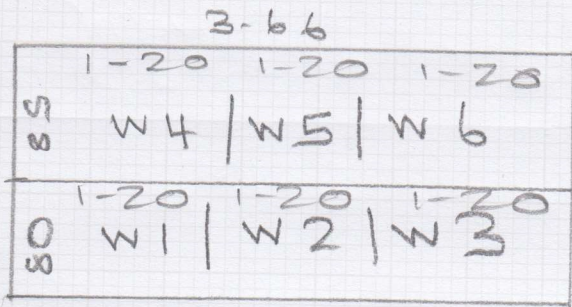 3-66
1-20 1-20 1-20
85 W4 | W5 | W6
1-20 1-20 1-20
80 W1 | W2 | W3